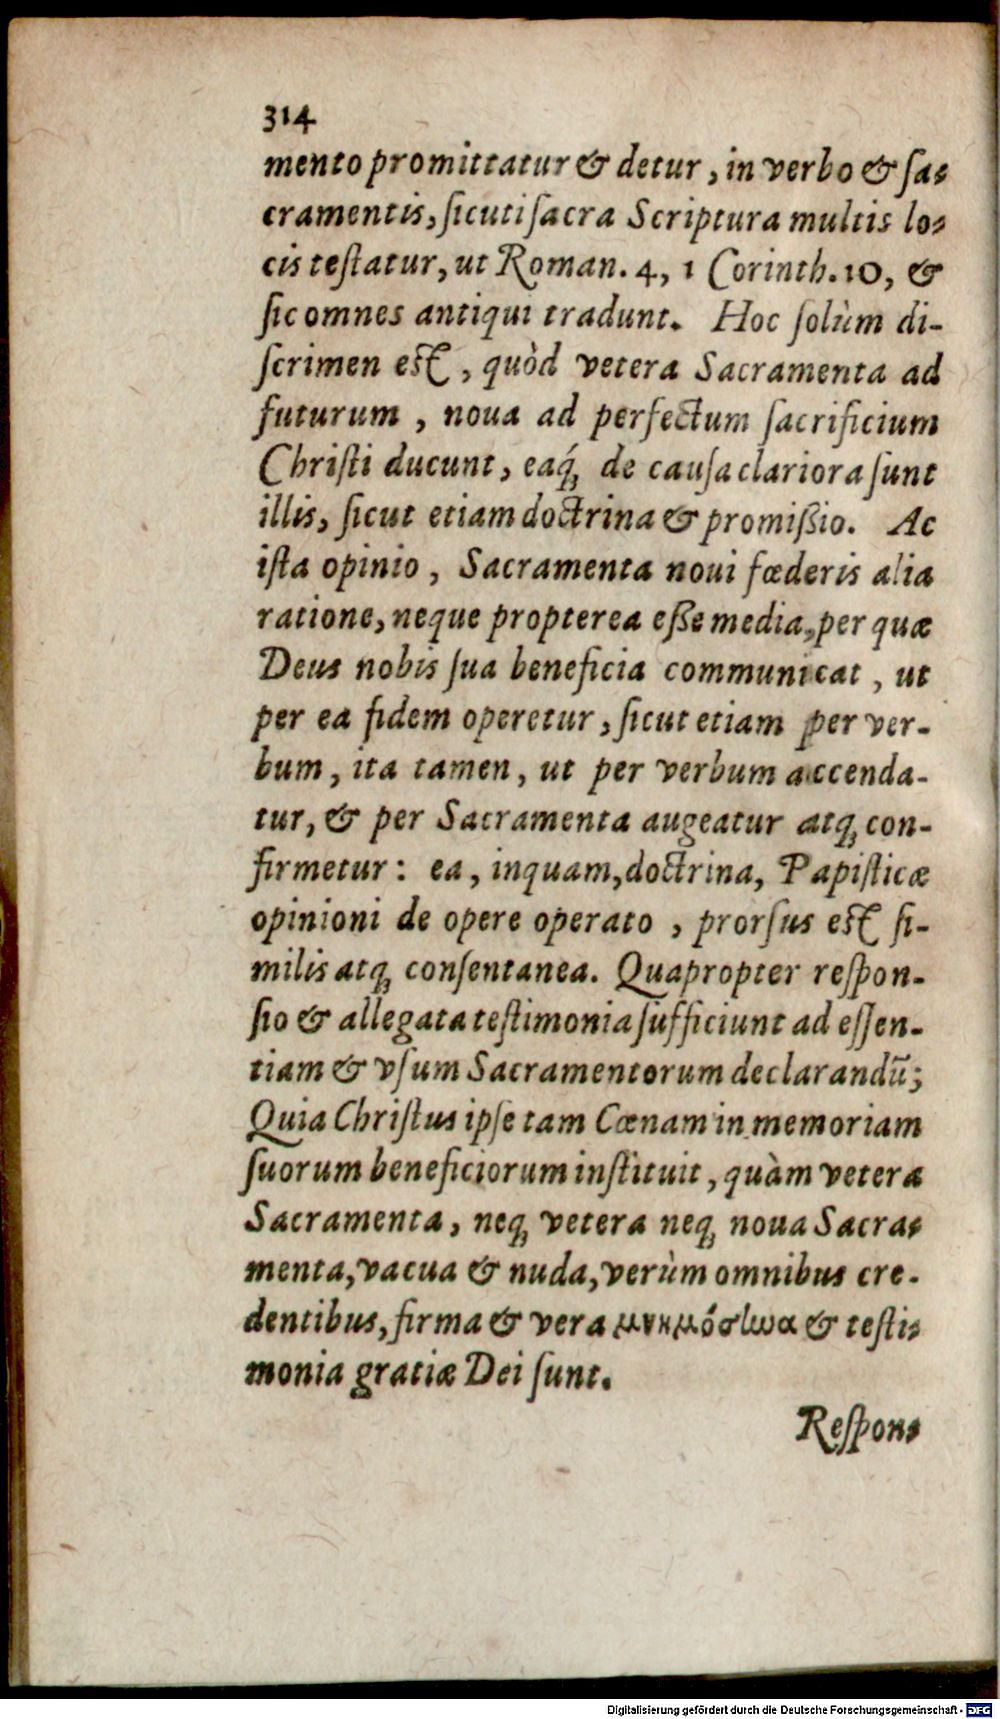 314
mento promittatur & detur, in verbo & ſa-
cramentis, ſicuti ſacra Scriptura multis lo-
cis teſtatur, ut Roman. 4, 1 Corinth. 10, &
ſic omnes antiqui tradunt. Hoc ſolùm di-
ſcrimen eſt, quòd vetera Sacramenta ad
futurum, noua ad perfectum ſacrificium
Chriſti ducunt, eaq́; de cauſa clariora ſunt
illis, ſicut etiam doctrina & promißio. Ac
iſta opinio, Sacramenta noui fœderis alia
ratione, neque propterea eße media, per quæ
Deus nobis ſua beneficia communicat, ut
per ea fidem operetur, ſicut etiam per ver-
bum, ita tamen, ut per verbum accenda-
tur, & per Sacramenta augeatur atq; con-
firmetur: ea, inquam, doctrina, Papiſticæ
opinioni de opere operato, prorſus eſt ſi-
milis atq; conſentanea. Quapropter reſpon-
ſio & allegata teſtimonia ſufficiunt ad eſſen-
tiam & vſum Sacramentorum declarandū;
Quia Chriſtus ipſe tam Cœnam in memoriam
ſuorum beneficiorum inſtituit, quàm vetera
Sacramenta, neq; vetera neq; noua Sacra-
menta, vacua & nuda, verùm omnibus cre-
dentibus, firma & vera μνημόσυνα & teſti-
monia gratiæ Dei ſunt.
Reſpon-
Digitalisierung gefördert durch die Deutsche Forschungsgemeinschaft - DFG